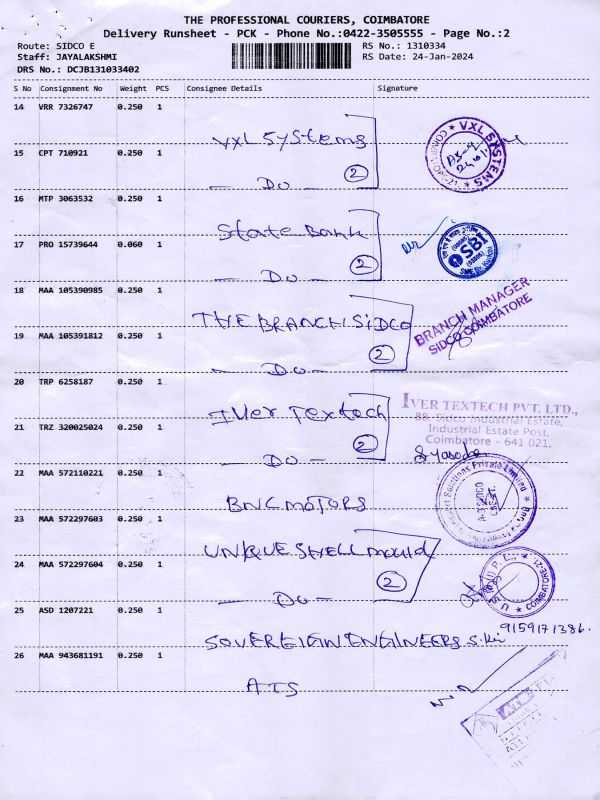 THE PROFESSIONAL COURIERS, COIMBATORE
Delivery Runsheet - PCK - Phone No.:0422-3505555 - Page No.:2
Route: SIDCO E
RS No.: 1310334
Staff: JAYALAKSHMI
RS Date: 24-Jan-2024
DRS No.: DCJB131033402
S No Consignment No Weight PCS Consignee Details Signature
14 VRR 7326747 0.250 1
VXL Systems
VXL SYSTEMS
COIMBATORE-21
15 CPT 710921 0.250 1
— Do — 2
16 MTP 3063532 0.250 1
State Bank
SBI
17 PRO 15739644 0.060 1
— Do — 2
18 MAA 105390985 0.250 1
THE BRANCH.SIDCO
BRANCH MANAGER
SIDCO COIMBATORE
19 MAA 105391812 0.250 1
— Do — 2
20 TRP 6258187 0.250 1
IVer Textech
IVER TEXTECH PVT. LTD.,
88, Sidco Industrial Estate,
Industrial Estate Post,
Coimbatore - 641 021.
21 TRZ 320025024 0.250 1
— Do — 2
22 MAA 572110221 0.250 1
BNC MOTORS
Solutions Private Limited
23 MAA 572297603 0.250 1
UNIQUE SHELL mould
24 MAA 572297604 0.250 1
— Do — 2
COIMBATORE-21
25 ASD 1207221 0.250 1
SOVEREIGN ENGINEERS
9159171386.
26 MAA 943681191 0.250 1
ATS